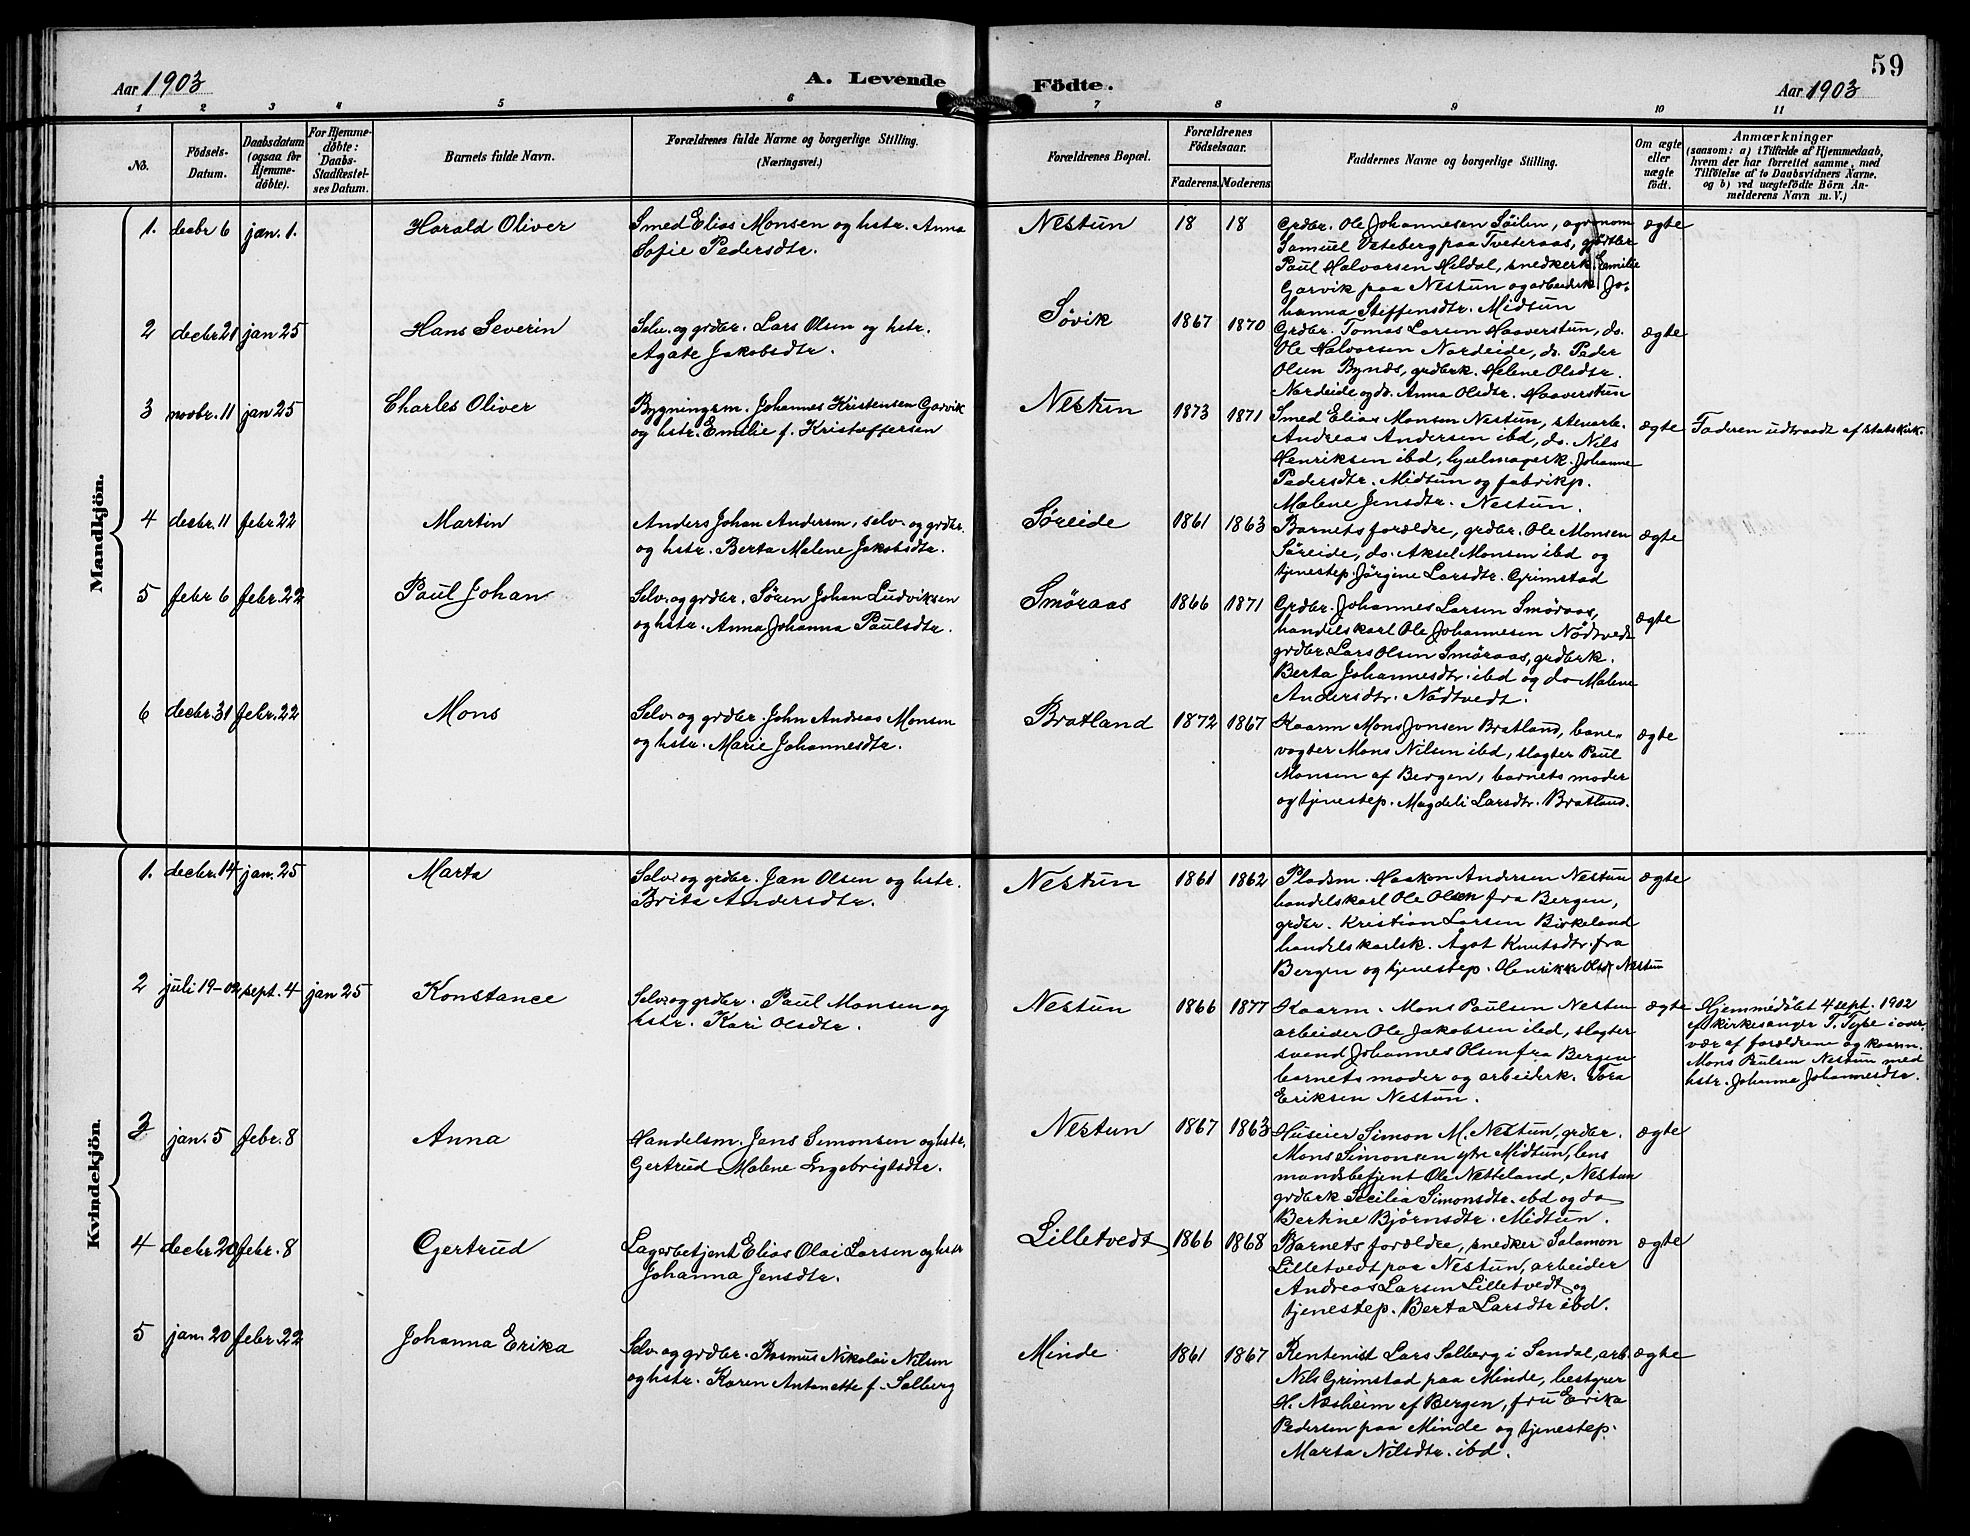 Aar 1903 A. Levende Födte. Aar 1903 59
1 2 3 4 5 6 7 8 9 10 11
No.
Födsels-Datum.
Daabsdatum (ogsaa for Hjemme-döbte).
For Hjemme-döbte: Daabs-Stadfæstel-ses Datum.
Barnets fulde Navn.
Forældrenes fulde Navne og borgerlige Stilling. (Næringsvei.)
Forældrenes Bopæl.
Forældrenes Födselsaar.
Faderens. Moderens.
Faddernes Navne og borgerlige Stilling.
Om ægte eller uægte födt.
Anmærkninger
(saasom: a) i Tilfælde af Hjemmedaab,
hvem der har forrettet samme, med
Tilföielse af to Daabsvidners Navne.
og b) ved uægtefödte Börn An-
melderens Navn m. V.)
Mandkjön.
1. decbr 6 jan. 1. Harald Oliver
Smed Elias Monsen og hstr. Anna
Sofie Pedersdtr.
Nestun 18 18
Grdbr. Ole Johannesen Søilen, agronom
Samuel Veteberg paa Tveteraas, gjørtler
Paul Halvorsen Hildal, snedkerk. Emilie
Garvik paa Nestun og arbeiderk. Jo-
hanna Steffensdtr. Midtun
ægte
2 decbr 21 jan 25 Hans Severin
Selv. og grdbr. Lars Olsen og hstr.
Agate Jakobsdtr.
Søvik 1867 1870
Grdbr. Tomas Larsen Haaverstun, do.
Ole Halvorsen Nordeide, do. Peder
Olsen Bynes, grdbrk. Helene Olsdtr.
Nordeide og do. Anna Olsdtr. Haaverstun
ægte
3 novbr. 11 jan 25 Charles Oliver
Bygningsm. Johannes Kristensen Garvik
og hstr. Emilie f. Kristoffersen
Nestun 1873 1871
Smed Elias Monsen Nestun, stenarb.
Andreas Andersen ibd, do. Nils
Henriksen ibd, hjulmagerk. Johanne
Pedersdtr. Midtun og fabrikp.
Malene Jensdtr. Nestun.
ægte Faderen udtraadt af statskirk.
4 decbr. 11 febr 22 Martin
Anders Johan Andersen, selv. og grdbr.
og hstr. Berta Malene Jakobsdtr.
Søreide 1861 1863
Barnets forældre, grdbr. Ole Monsen
Søreide, do. Aksel Monsen ibd og
tjenestep. Jörgine Larsdtr. Grimstad
ægte
5 febr 6 febr. 22 Paul Johan
Selv. og grdbr. Sören Johan Ludviksen
og hstr. Anna Johanna Paulsdtr.
Smøraas 1866 1871
Grdbr. Johannes Larsen Smøraas,
handelskarl Ole Johannesen Nödtvedt
grdbr. Lars Olsen Smøraas, grdbrk.
Berta Johannesdtr. ibd og do Malene
Andersdtr. Nödtvedt.
ægte
6 decbr. 31 febr. 22 Mons
Selv. og grdbr. John Andreas Monsen
og hstr. Marie Johannesdtr.
Bratland 1872 1867
Kaarm Mons Jonsen Bratland, bane-
vogter Mons Nilsen ibd, slagter Paul
Monsen af Bergen, barnets moder
og tjenestep. Magdeli Larsdtr. Bratland.
ægte
Kvindekjön.
1. decbr. 14 jan. 25 Marta
Selv. og grdbr. Jan Olsen og hstr.
Brita Andersdtr.
Nestun 1861 1862
Pladsm. Haakon Andersen Nestun
handelskarl Ole Olsen fra Bergen,
grdbr. Kristian Larsen Birkeland
handelskarlsk. Agot Knutsdtr. fra
Bergen og tjenestep. Henrikke Olsdtr Nestun
ægte
2 juli 19-02 sept. 4 jan 25 Konstance
Selv. og grdbr. Paul Monsen og
hstr. Kari Olsdtr.
Nestun 1866 1877
Kaarm. Mons Paulsen Nestun
arbeider Ole Jakobsen ibd, slagter
svend Johannes Olsen fra Bergen
barnets moder og arbeiderk. Tora
Eriksen Nestun.
ægte
Hjemmedøbt 4 sept. 1902
af kirkesanger T. Tyse i over-
vær af forældrene og kaarm.
Mons Paulsen Nestun med
hstr. Johanne Johannesdtr.
3 jan. 5 febr. 8 Anna
Handelsm. Jans Simonsen og hstr.
Gertrud Malene Ingebrigtsdtr.
Nestun 1867 1863
Huseier Simon M. Nestun, grdbr.
Mons Simonsen ytr Midtun, lens
mandsbetjent Ole Netteland, Nestun
grdbrk Secilia Simonsdtr. ibd og do
Bertine Björnsdtr. Midtun.
ægte
4 decbr. 20 febr. 8 Gertrud
Lagerbetjent Elias Olai Larsen og hstr
Johanna Jensdtr.
Lilletvedt 1866 1868
Barnets forældre, snedker Salamon
Lilletvedt paa Nestun, arbeider
Andreas Larsen Lilletvedt og
tjenestep. Berta Larsdtr ibd.
ægte
5 jan. 20 febr. 22 Johanna Erika
Selv. og grdbr. Rasmus Nikolai Nilsen
og hstr. Karen Antonette f. Solberg
Minde 1861 1867
Rentenist Lars Solberg i Sandal, arb.
Nils Grimstad paa Minde, bestyrer
H. Næsheim af Bergen, fru Erika
Pedersen paa Minde og tjenestep.
Marta Nilsdtr. ibd.
ægte